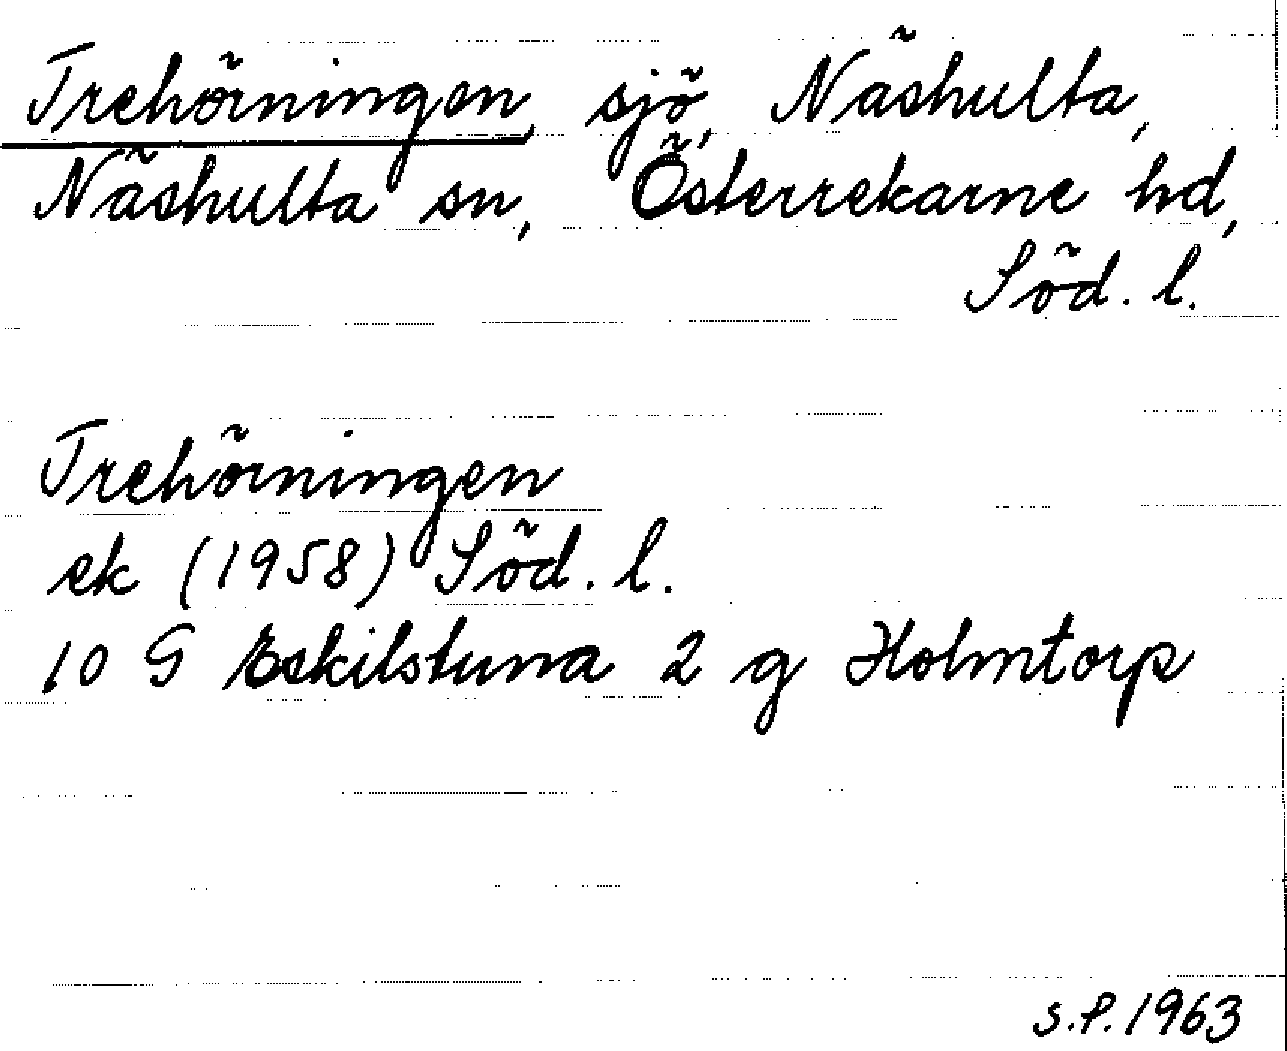 Trehörningen, sjö, Näshulta,
Näshulta sn, Österrekarne hd,
Söd. l.
Trehörningen
ek (1958) Söd. l.
10 G Eskilstuna 2 g Holmtorp
S.P. 1963